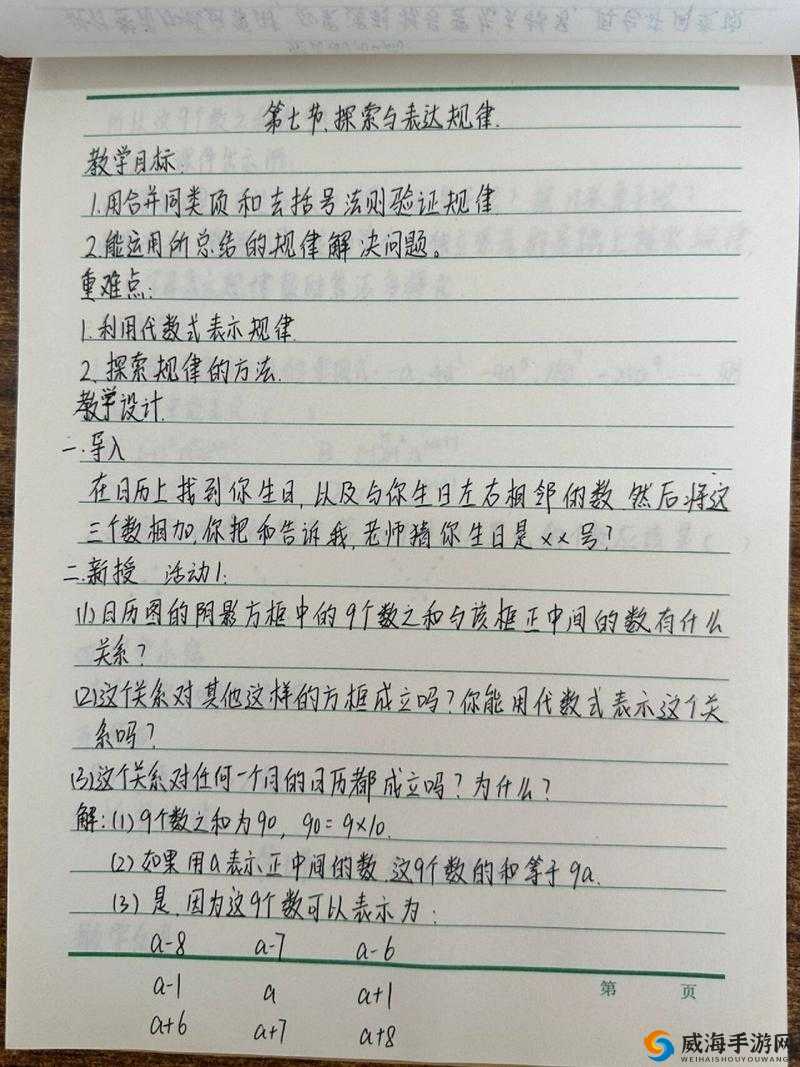 第七节、探索与表达规律.
教学目标:
1.用合并同类项和去括号法则验证规律
2.能运用所总结的规律解决问题。
重难点:
1.利用代数式表示规律.
2.探索规律的方法.
教学设计.
一.导入
在日历上找到你生日,以及与你生日左右相邻的数.然后将这
三个数相加,你把和告诉我,老师猜你生日是××号?
二.新授 活动1:
(1)日历图的阴影方框中的9个数之和与该框正中间的数有什么
关系?
(2)这个关系对其他这样的方框成立吗?你能用代数式表示这个关
系吗?
(3)这个关系对任何一个月的日历都成立吗?为什么?
解:(1)9个数之和为90, 90=9×10.
(2)如果用a表示正中间的数.这9个数的和等于9a.
(3)是.因为这9个数可以表示为:
a-8 a-7 a-6
a-1 a a+1
a+6 a+7 a+8
第 页
威海手游网
WEIHAISHOUYOUWANG